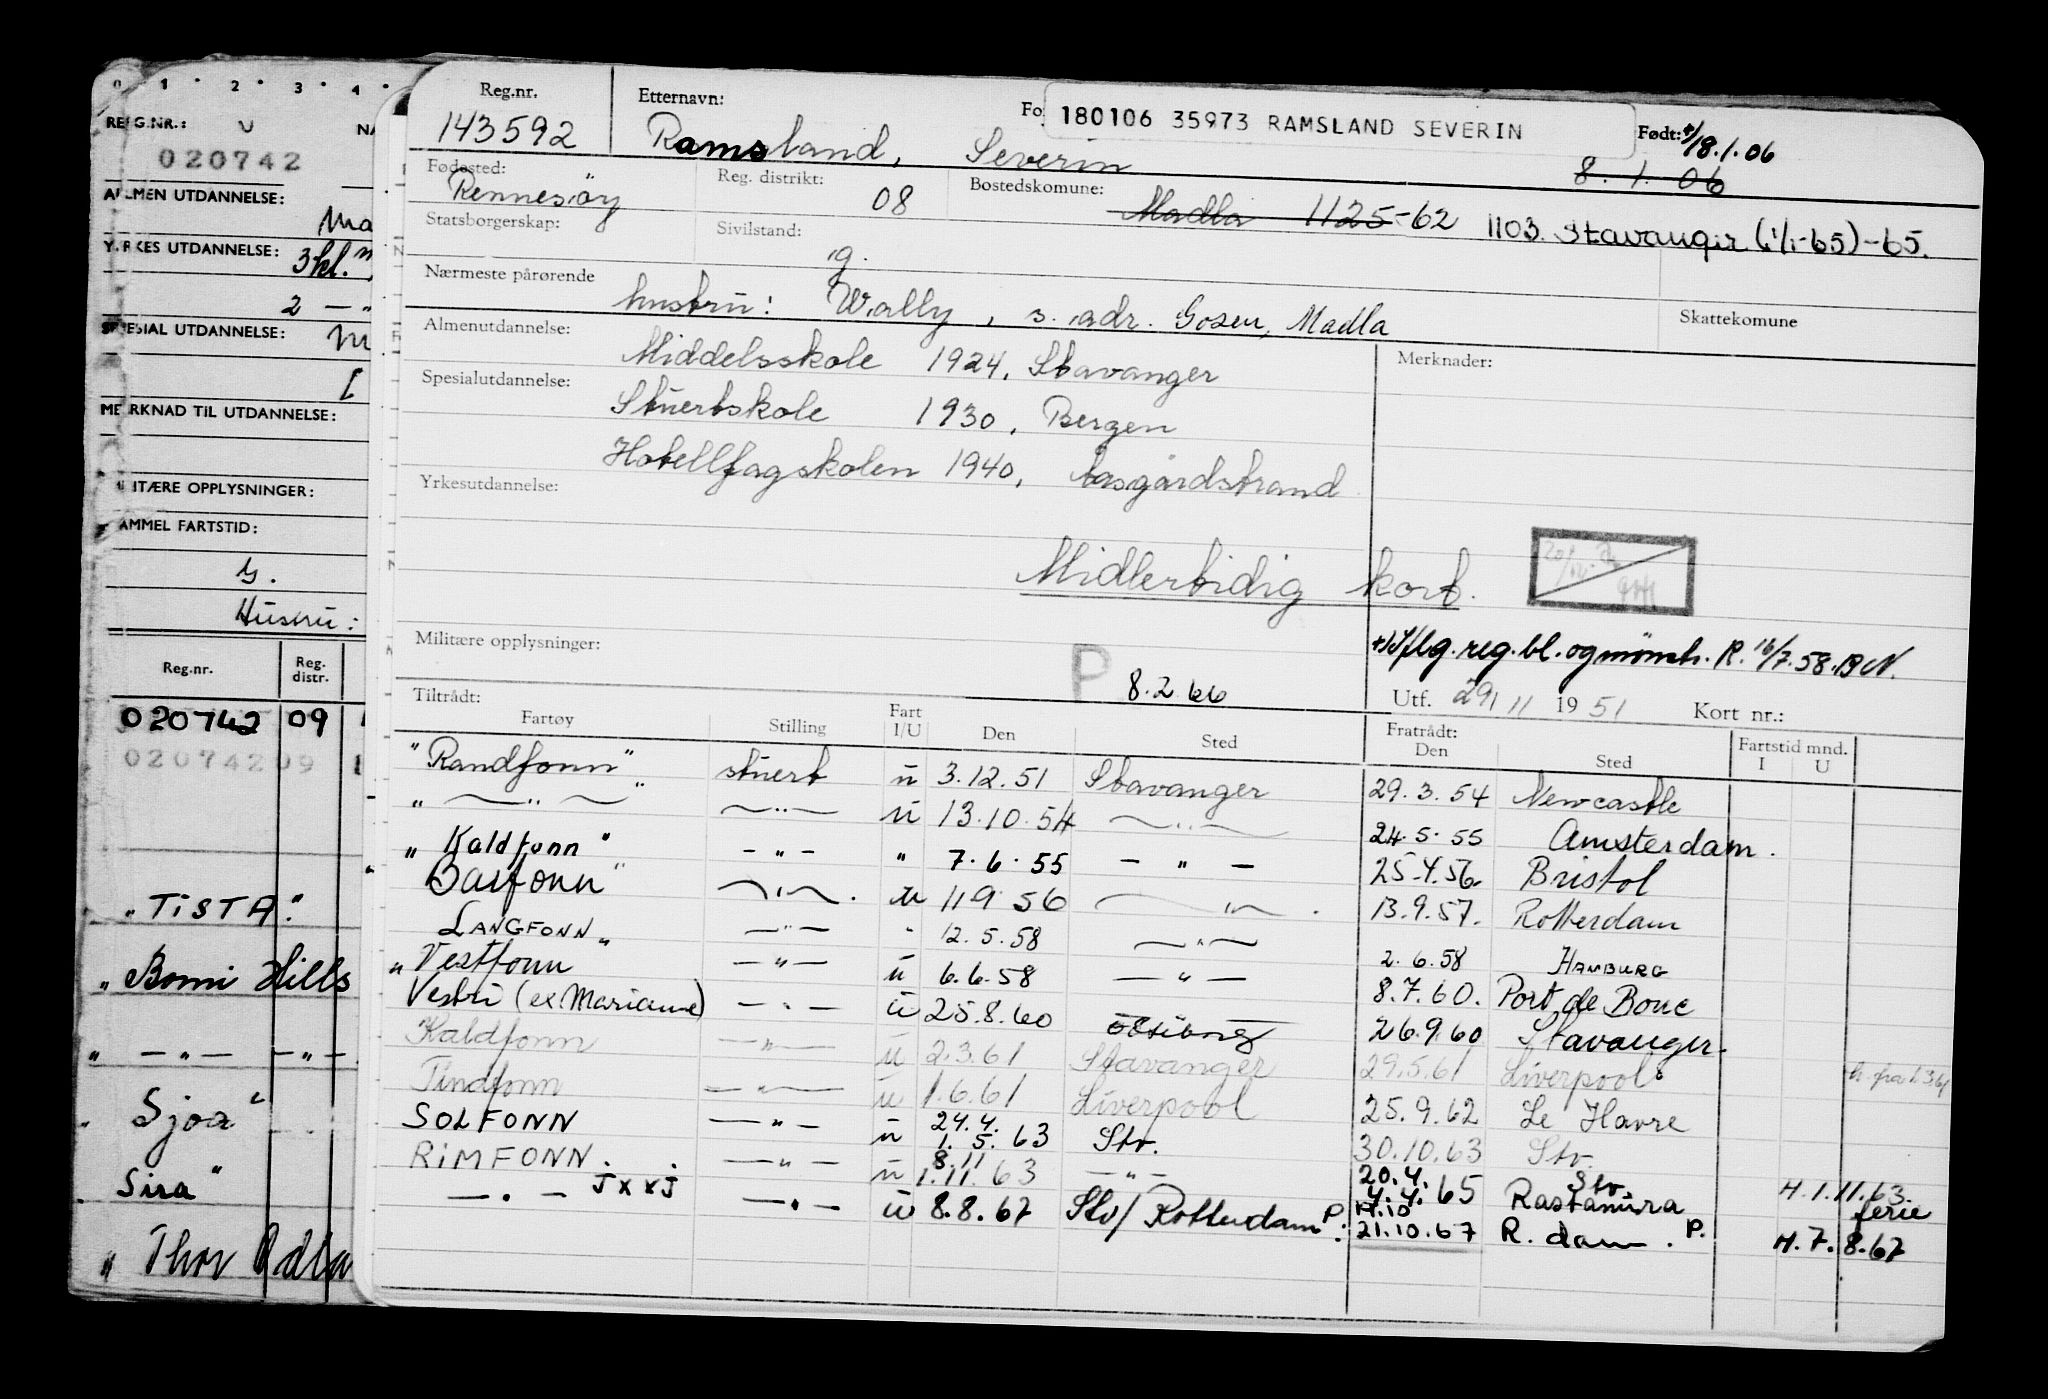 0 1 2 3 4
REG.NR.:
020742
ALMEN UTDANNELSE:
YRKES UTDANNELSE: 3kl.
2 — "
SPESIAL UTDANNELSE:
MERKNAD TIL UTDANNELSE:
MILITÆRE OPPLYSNINGER:
GAMMEL FARTSTID:
g.
Hustru:
Reg.nr. Reg. distr.
020742 09
020742 09
"TISTA"
"Bomi Hills
" — " — — " —
Sjoa"
Sira"
" Thor Odland
Reg.nr. Etternavn: Fo 180106 35973 RAMSLAND SEVERIN Født: +/18.1.06
143592 Ramsland, Severin 8.1.06
Fødested: Reg. distrikt: Bostedskomune:
Rennesøy 08 Madla 1125-62 1103. Stavanger (1/1-65)-65.
Statsborgerskap: Sivilstand:
g.
Nærmeste pårørende
hustru: Wally, s. adr. Gosen, Madla Skattekomune
Almenutdannelse: Merknader:
Middelsskole 1924, Stavanger
Spesialutdannelse:
Stuertskole 1930, Bergen
Hotellfagskolen 1940, Aasgårdstrand
Yrkesutdannelse:
Midlertidig kort.
Militære opplysninger: +) Iflg. reg.bl. og mønstr. R. 16/7.58. BN.
P 8.2.66
Tiltrådt: Utf. 29/11 1951 Kort nr.:
Fartøy Stilling Fart I/U Den Sted Fratrådt: Den Sted Fartstid mnd. I U
"Randfonn" stuert u 3.12.51 Stavanger 29.3.54 Newcastle
" — " — " — " — u 13.10.54 — " — 24.5.55 Amsterdam.
" Kaldfonn" — " — " 7.6.55 — " — 25.4.56. Bristol
" Barfonn" — " — . u 11 9 56 — " — . 13.9.57. Rotterdam
LANGFONN " — " — " 12.5.58 — " — 2.6.58 HAMBURG
" Vestfonn — " — u 6.6.58 — " — 8.7.60. Port de Bouc
Vestri (ex.Marianne) — " — u 25.8.60 26.9.60 Stavanger.
Kaldfonn — " — u 2.3.61 Stavanger 29.5.61 Liverpool h. fra 1.3.61
Tindfonn — " — u 1.6.61 Liverpool 25.9.62 Le Havre
SOLFONN — " — u 24.4. 1.5.63 Stv. 30.10.63 Stv.
RIMFONN. — " — u 8.11 1.11.63 — " — 20.4. 4.4.65 Stv. Rastanura H.1.11.63. ferie
— " — JxxJ — " — u 8.8.67 Stv/Rotterdam P. 14.10 21.10.67 R.dam. P. H.7.8.67